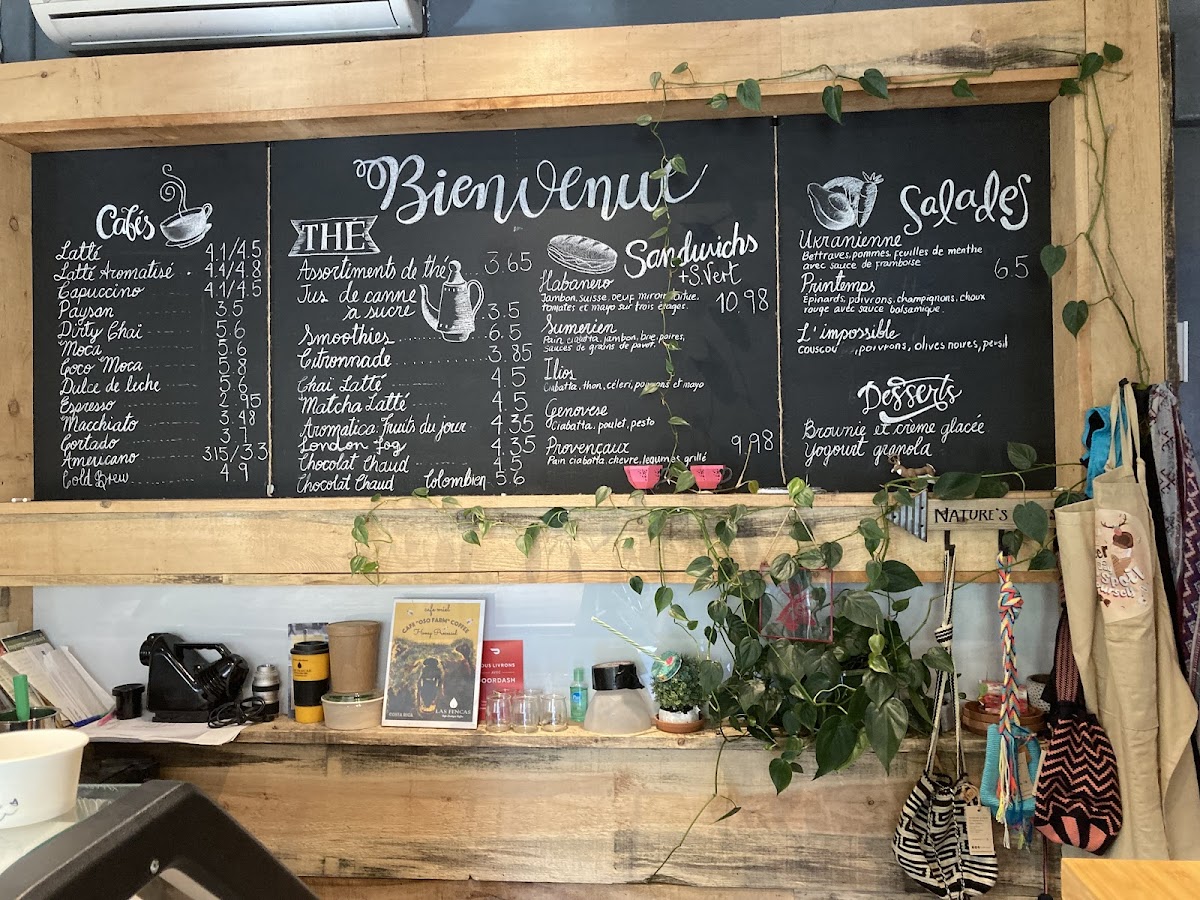 Bienvenue
Cafés
Latté 4.1/4.5
Latté Aromatisé 4.4/4.8
Capuccino 4.1/4.5
Paysan 3.5
Dirty Chai 5.6
Moca 5.6
Coco Moca 5.8
Dulce de leche 5.6
Espresso 2.95
Macchiato 3.48
Cortado 3.7
Americano 3.15/3.3
Cold Brew 4.9
THÉ
Assortiments de thé 3.65
Jus de canne
à sucre 3.5
Smoothies 6.5
Citronnade 3.85
Chai Latté 4.5
Matcha Latté 4.5
Aromatica Fruits du jour 4.35
London Fog 4.35
Chocolat Chaud 4.5
Chocolat Chaud Colombien 5.6
Sandwichs
+ S. Vert
Habanero 10.98
Jambon, Suisse, oeuf miroir, laitue,
tomates et mayo sur trois étages.
Sumerien
Pain ciabatta, jambon, brie, poires,
Sauces de grains de pavot
Ilios
Ciabatta, thon, céleri, et mayo
Genovese
Ciabatta, poulet, pesto
Provençaux 9.98
Pain ciabatta, chevre, legumes grillé
Salades
Ukranienne
Bettraves, pommes, feuilles de menthe
avec sauce de framboise 6.5
Printemps
Épinards, poivrons, champignons, choux
rouge avec sauce balsamique.
L'impossible
couscou , poivrons, olives noires, persil
Desserts
Brownie et crème glacée
Yogourt granola
NATURE'S
cafe miel
CAFE "OSO FARM" COFFEE
Honey Processed
COSTA RICA
LAS FINCAS
OUS LIVRONS
AVEC
OORDASH